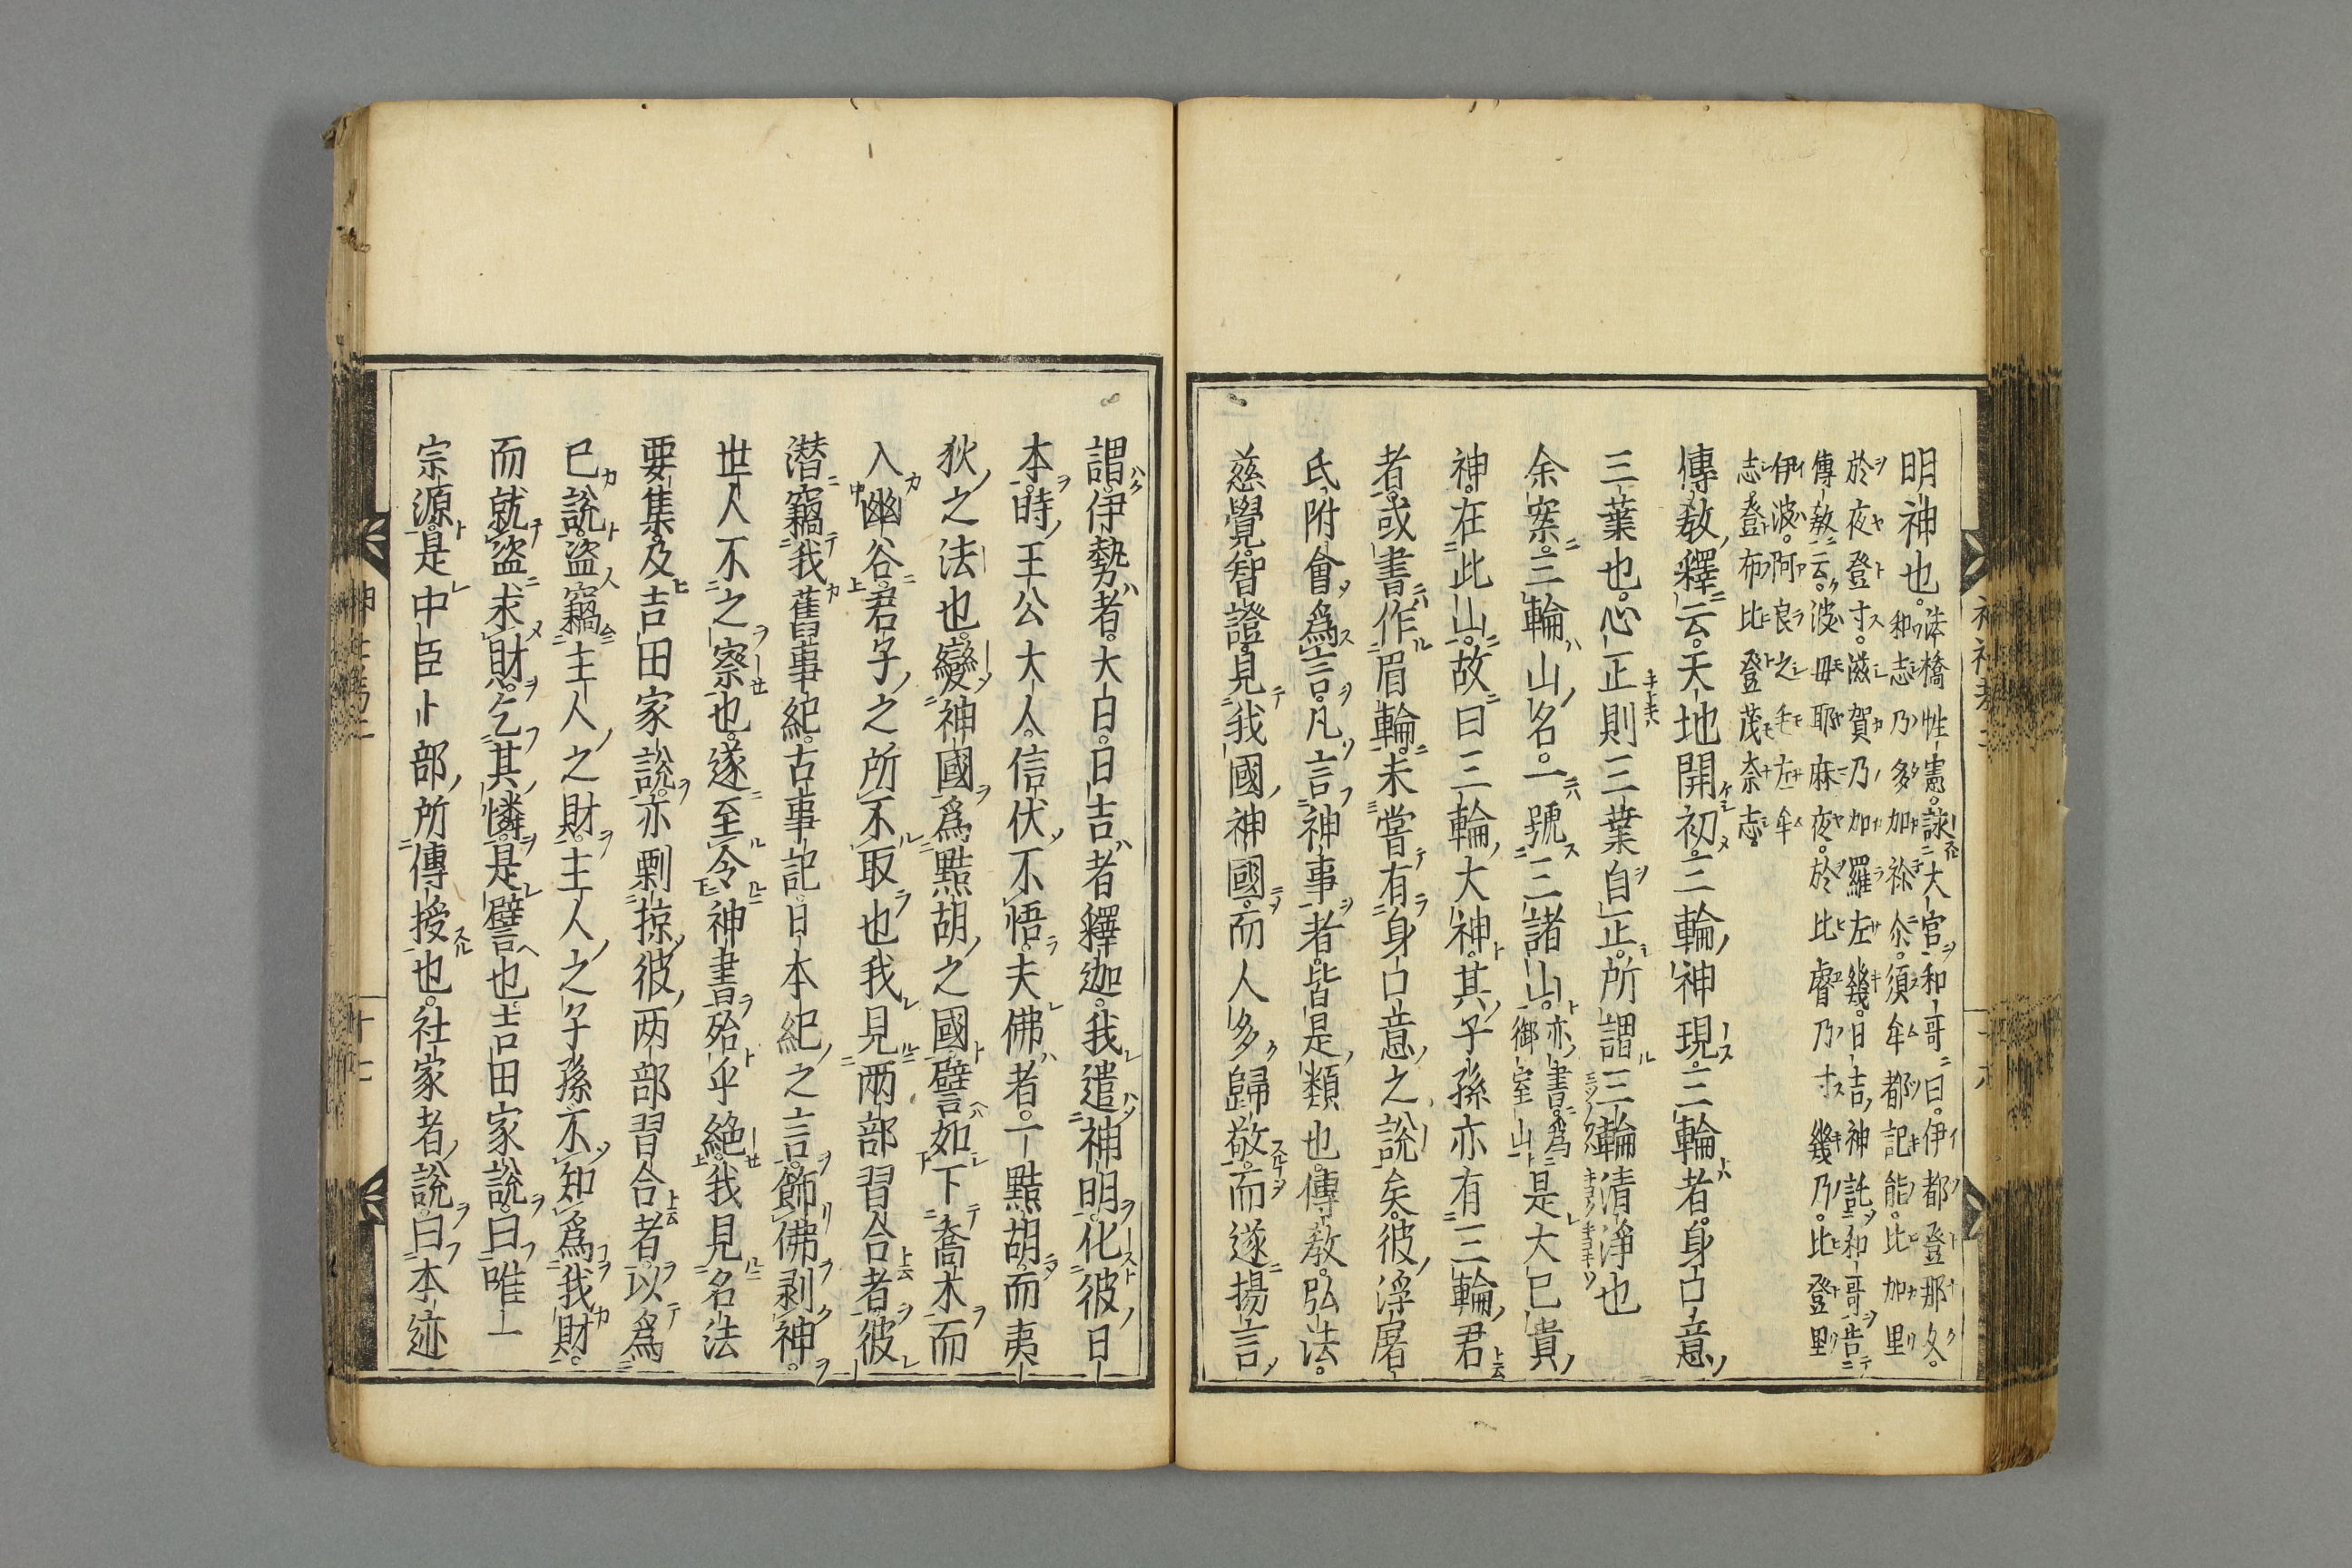 明神也。法橋性憲。詠大宮和哥曰。伊都登那久。
和志乃多加祢尒。須牟都記能。比加里
於夜登寸。滋賀乃加羅左幾。日吉神託和哥告
傳敎云。波毋耶麻夜。於比睿乃寸幾乃。比登里
伊波。阿良之毛左牟
志登布比登茂奈志
傳敎釋云。天地開初。三輪神現。三輪者。身口意
三葉也。心正則三葉自正。所謂三輪清淨也
余案。三輪山名。一號三諸山。亦書爲御室山是大巳貴
神。在此山。故曰三輪大神。其子孫亦有三輪君
者。或書作眉輪。未嘗有身口意之說矣。彼浮屠
氏附會爲言。凡言神事者。皆是類也。傳敎。弘法。
慈覺。智證。見我國神國。而人多歸敬。而遂揚言
謂伊勢者。大日。日吉者釋迦。我遣神明。化彼日
本。時王公大人。信伏不悟。夫佛者。一點胡。而夷
狄之法也。變神國爲點胡之國。譬如下喬木而
入幽谷。君子之所不取也我見兩部習合者。彼
潜竊我舊事紀。古事記日本紀之言。飾佛剥神。
世人不之察也。遂至令神書殆乎絕。我見名法
要集。及吉田家說。亦剽掠彼両部習合者。以爲
已說。盜竊主人之財。主人之子孫不知爲我財。
而就盜求財。乞其憐。是譬也。吉田家說。曰唯一
宗源。是中臣卜部所傳授也。社家者說。曰本迹